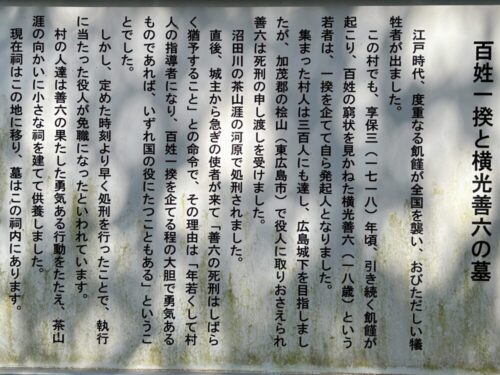 百姓一揆と横光善六の墓
江戸時代、度重なる飢饉が全国を襲い、おびただしい犠
牲者が出ました。
この村でも、享保三(一七一八)年頃、引き続く飢饉が
起こり、百姓の窮状を見かねた横光善六(一八歳)という
若者は、一揆を企てて自ら発起人となりました。
集まった村人は三百人にも達し、広島城下を目指しまし
たが、加茂郡の桧山(東広島市)で役人に取りおさえられ
善六は死刑の申し渡しを受けました。
沼田川の茶山涯の河原で処刑されました。
直後、城主から急ぎの使者が来て「善六の死刑はしばら
く猶予すること」との命令で、その理由は「年若くして村
人の指導者になり、百姓一揆を企てる程の大胆で勇気ある
ものであれば、いずれ国の役にたつこともある」というこ
とでした。
しかし、定めた時刻より早く処刑を行ったことで、執行
に当たった役人が免職になったといわれています。
村の人達は善六の果たした勇気ある行動をたたえ、茶山
涯の向かいに小さな祠を建てて供養しました。
現在祠はこの地に移り、墓はこの祠内にあります。